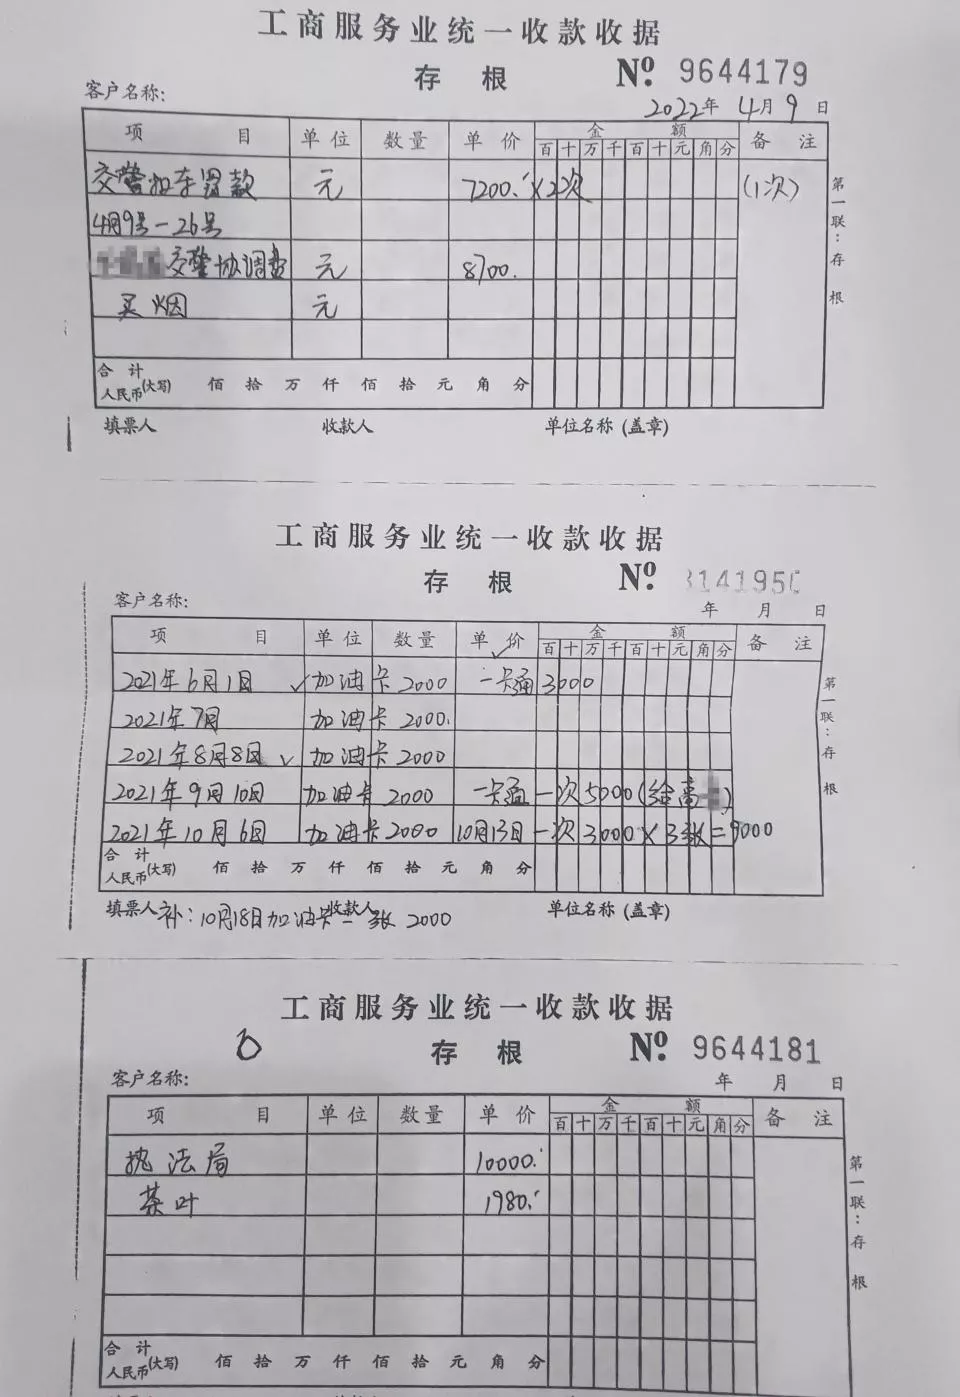 工商服务业统一收款收据
存 根 Nº 9644179
客户名称: 2022年 4月 9日
项 目 单位 数量 单价 金 额 备 注
百 十 万 千 百 十 元 角 分
交警扣车罚款 元 7200. ×2次 (1次)
4月9号-26号
交警协调费 元 8700.
买烟 元
合 计
人民币(大写) 佰 拾 万 仟 佰 拾 元 角 分
填票人 收款人 单位名称(盖章)
第一联:存根
工商服务业统一收款收据
存 根 Nº 3141950
客户名称: 年 月 日
项 目 单位 数量 单价 金 额 备 注
百 十 万 千 百 十 元 角 分
2021年6月1日 加油卡 2000 一卡通 3000
2021年7月 加油卡 2000.
2021年8月8日 加油卡 2000
2021年9月10日 加油卡 2000 一卡通 一次5000(给高)
2021年10月6日 加油卡 2000 10月13日 一次 3000×3张=9000
合 计
人民币(大写) 佰 拾 万 仟 佰 拾 元 角 分
填票人 收款人 单位名称(盖章)
补:10月18日加油卡一张 2000
第一联:存根
工商服务业统一收款收据
存 根 Nº 9644181
客户名称: 年 月 日
项 目 单位 数量 单价 金 额 备 注
百 十 万 千 百 十 元 角 分
执法局 10000.
茶叶 1980.
合 计
人民币(大写) 佰 拾 万 仟 佰 拾 元 角 分
第一联:存根